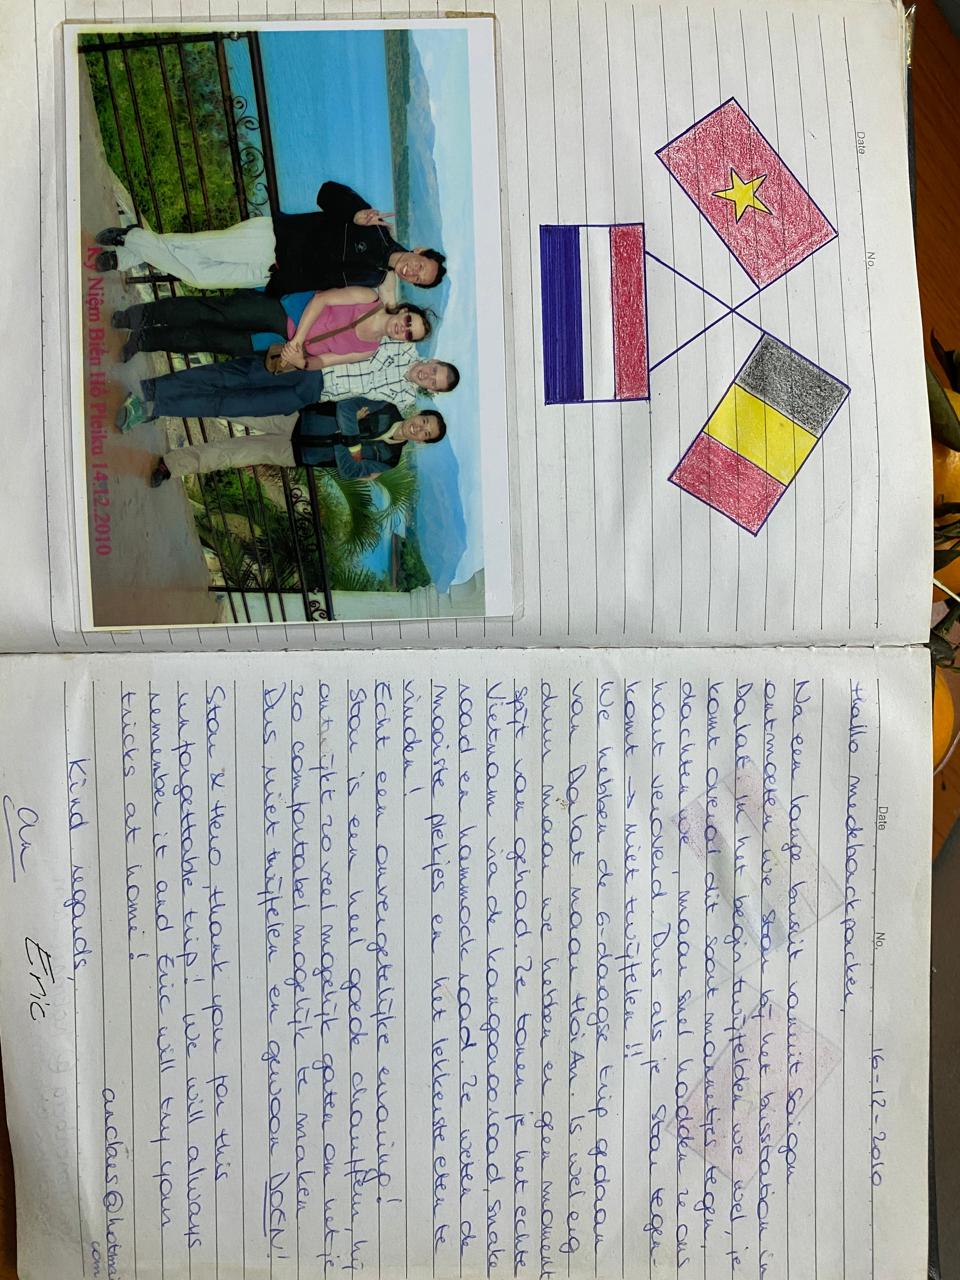 Date
No.
Kỷ Niệm Biển Hồ Pleiku 14.12.2010
Date
No.
16-12-2010
Hallo medebackpacker,
Na een lange busrit vanuit Saigon
ontmoeten we Star bij het busstation in
Dalat. In het begin twijfelden we wel, je
komt overal dit soort mannetjes tegen,
dachten we, maar snel hadden ze ons
hart veroverd. Dus als je Star tegen-
komt → niet twijfelen!!
We hebben de 6-daagse trip gedaan
van Da Lat naar Hoi An. Is wel erg
duur maar we hebben er geen moment
spijt van gehad. Ze tonen je het echte
Vietnam via de kangaroo road, snake
road en hammock road. Ze weten de
mooiste plekjes en het lekkerste eten te
vinden!
Echt een onvergetelijke ervaring!
Star is een heel goede chauffeur, hij
ontwijkt zo veel mogelijk gaten om het je
zo comfortabel mogelijk te maken.
Dus niet twijfelen en gewoon DOEN!
Star & Hero, thank you for this
unforgettable trip! We will always
remember it and Eric will try your
tricks at home!
Kind regards,
An Eric
@hotmai
com